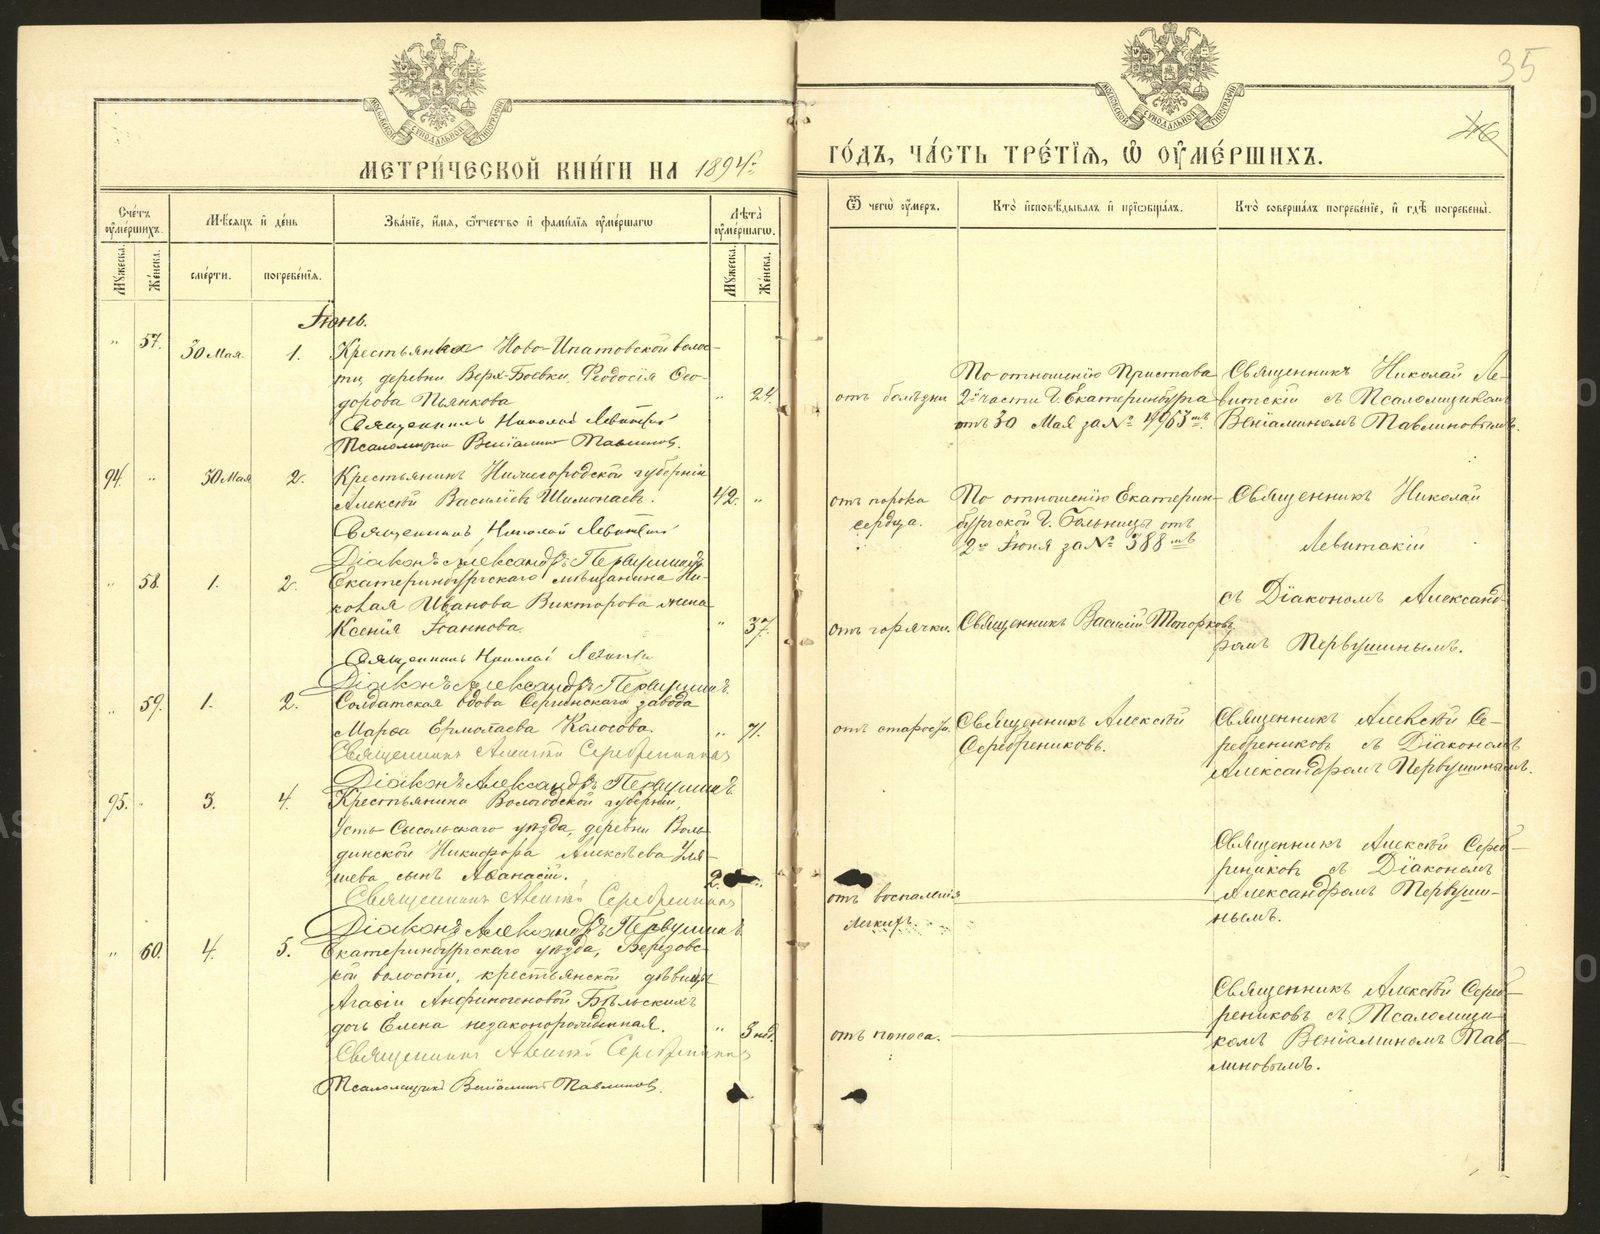 35
46
МЕТРИ́ЧЕСКОЙ КНИ́ГИ НА 1894 г.
ГО́ДЪ, ЧА́СТЬ ТРЕ́ТЇѦ, Ѡ҆ ОУ҆МЕ́РШИХЪ.
Сче́тъ оу҆ме́ршихъ.
Мѣ́сѧцъ и҆ де́нь
Зва́нїе, и҆́мѧ, ѻ҆́тчество и҆ фами́лїѧ оу҆ме́ршагѡ
Лѣ́та̀ оу҆ме́ршагѡ.
Ѿ чегѡ̀ оу҆́меръ.
Кто̀ и҆сповѣ́дывалъ и҆ прїѡбща́лъ.
Кто̀ соверша́лъ погребе́нїе, и҆ гдѣ̀ погребены̀.
Мꙋ́жеска.
Же́нска.
сме́рти.
погребе́нїѧ.
Мꙋ́жеска.
Же́нска.
Іюнь.
" 57. 30 Мая 1.
Крестьянка Ново-Ипатовской волос-
ти, деревни Верх-Боевки, Ѳеодосія Ѳео-
дорова Пьянкова
" 24.
Священникъ Николай Левитскій
Псаломщикъ Веніаминъ Павлиновъ.
отъ болѣзни
По отношенію Пристава
2й части г. Екатеринбурга
отъ 30 Мая за № 4963 мъ
Священникъ Николай Ле-
витскій съ Псаломщикомъ
Веніаминомъ Павлиновымъ.
94. " 30 Мая 2.
Крестьянинъ Нижегородской губерніи
Алексѣй Василіевъ
42. "
Священникъ Николай Левитскій
Діаконъ Александръ Первушинъ
отъ порока
сердца.
По отношенію Екатерин-
бургской г. больницы отъ
2го Іюня за № 388 мъ
Священникъ Николай
Левитскій
съ Діакономъ Александ-
ромъ Первушинымъ.
" 58. 1. 2.
Екатеринбургскаго мѣщанина Ни-
колая Иванова Викторова жена
Ксенія Іоаннова.
" 37.
Священникъ Николай Левитскій
Діаконъ Александръ Первушинъ
отъ горячки.
Священникъ Василій Топорковъ
" 59. 1. 2.
Солдатская вдова Сергинскаго завода
Марѳа Ермолаева Колосова.
" 71.
Священникъ Алексѣй Серебрениковъ
Діаконъ Александръ Первушинъ
отъ старости.
Священникъ Алексѣй
Серебрениковъ.
Священникъ Алексѣй Се-
ребрениковъ съ Діакономъ
Александромъ Первушинымъ.
95. " 3. 4.
Крестьянина Вологодской губерніи,
Усть Сысольскаго уѣзда, деревни Воль-
динской Никифора Алексѣева Уля-
шева сынъ Аѳанасій.
2.
Священникъ Алексѣй Серебрениковъ
Діаконъ Александръ Первушинъ
отъ воспаленія
легкихъ.
Священникъ Алексѣй Сереб-
рениковъ съ Діакономъ
Александромъ Первуши-
нымъ.
" 60. 4. 5.
Екатеринбургскаго уѣзда, Березовс-
кой волости, крестьянской дѣвицы
Агаѳіи Анфиногеновой Бѣльскихъ
дочь Елена незаконорожденная.
" 3 нед.
Священникъ Алексѣй Серебрениковъ
Псаломщикъ Веніаминъ Павлиновъ.
отъ поноса.
Священникъ Алексѣй Сереб-
рениковъ съ Псаломщи-
комъ Веніаминомъ Пав-
линовымъ.